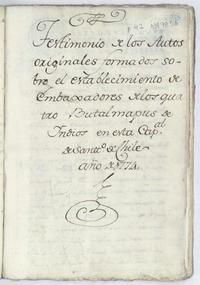 Testimonio de los Autos
originales formados so-
bre el establecimiento de
Embaxadores de los qua
tro Butalmapus de
Indios en esta Cap.al
de Santt.o de Chile
año de 1774